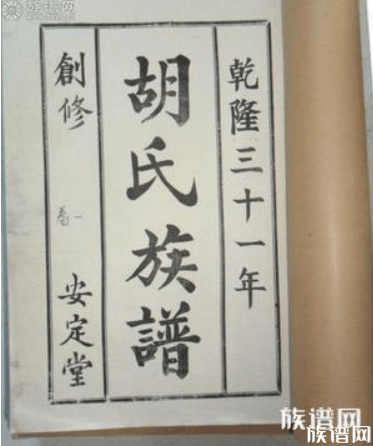 乾隆三十一年
胡氏族譜
創修
卷一
安定堂
族谱网
族谱网